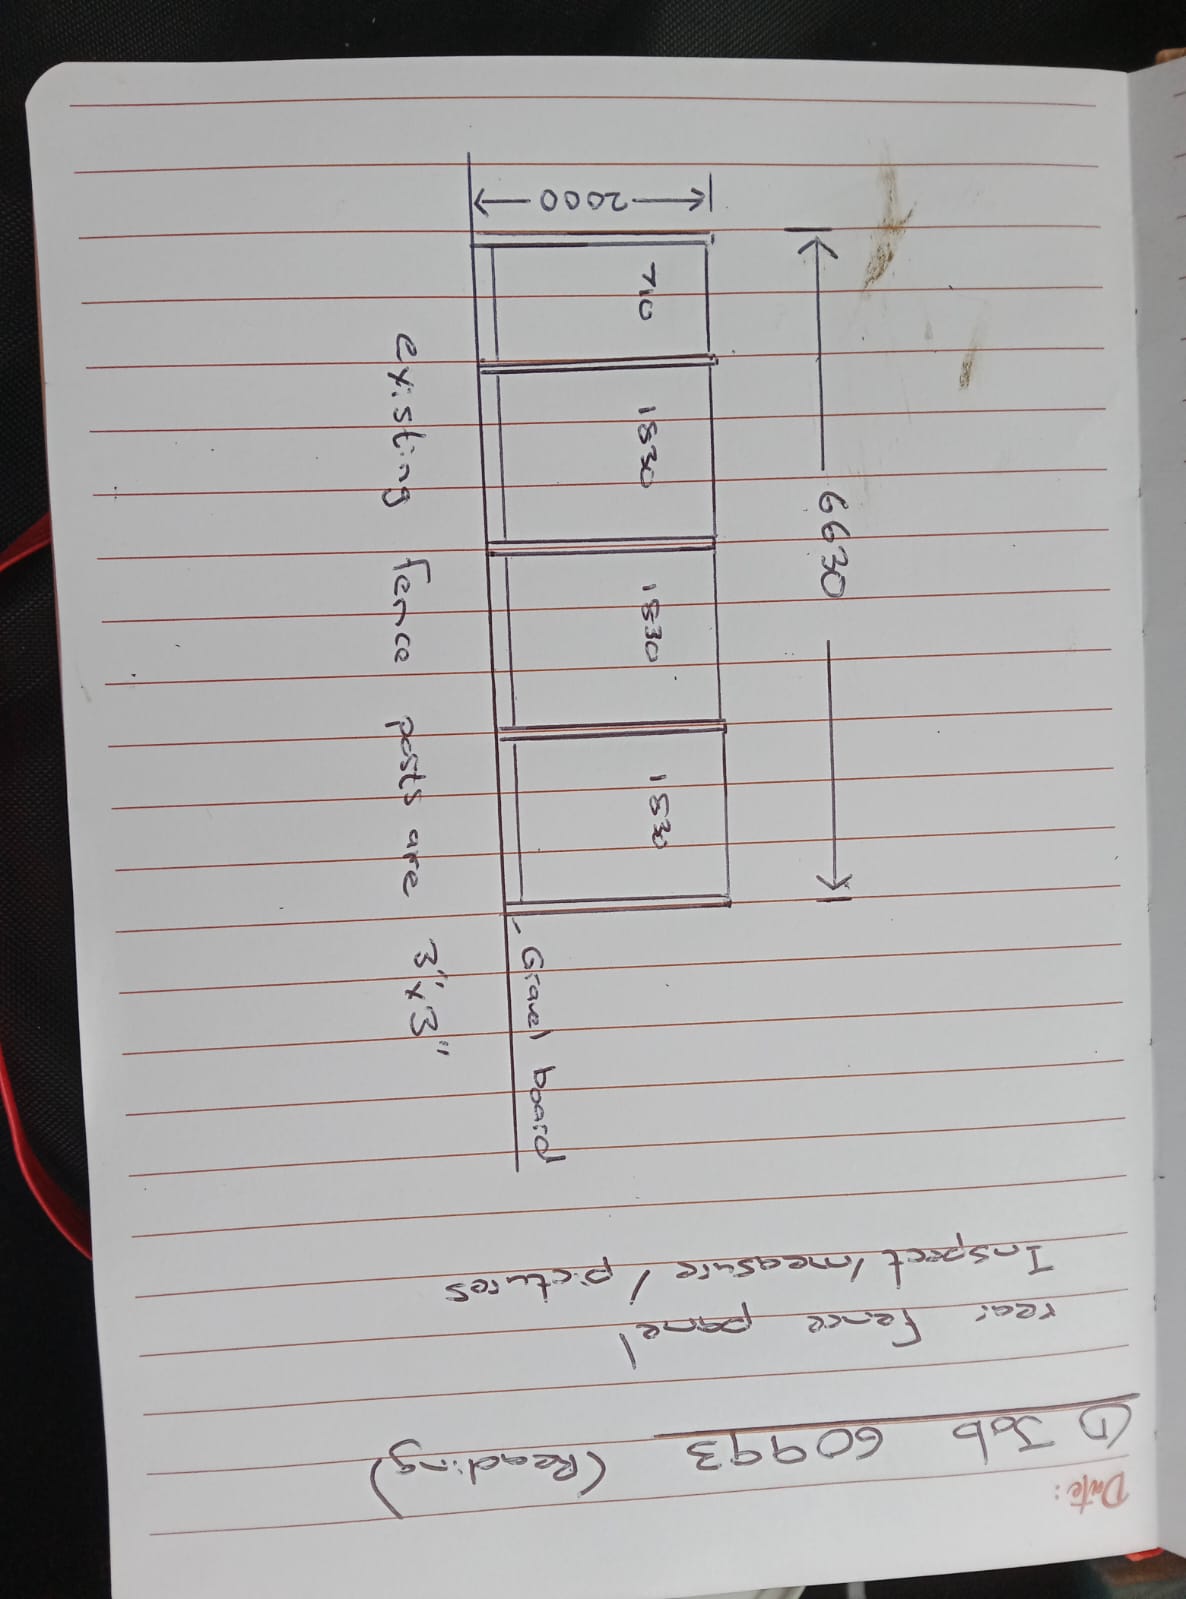 Date:
① Job 60993 (Reading)
rear fence panel
Inspect/measure/pictures
6630
2000
710 1830 1830 1830
Gravel board
existing fence posts are 3"x3"